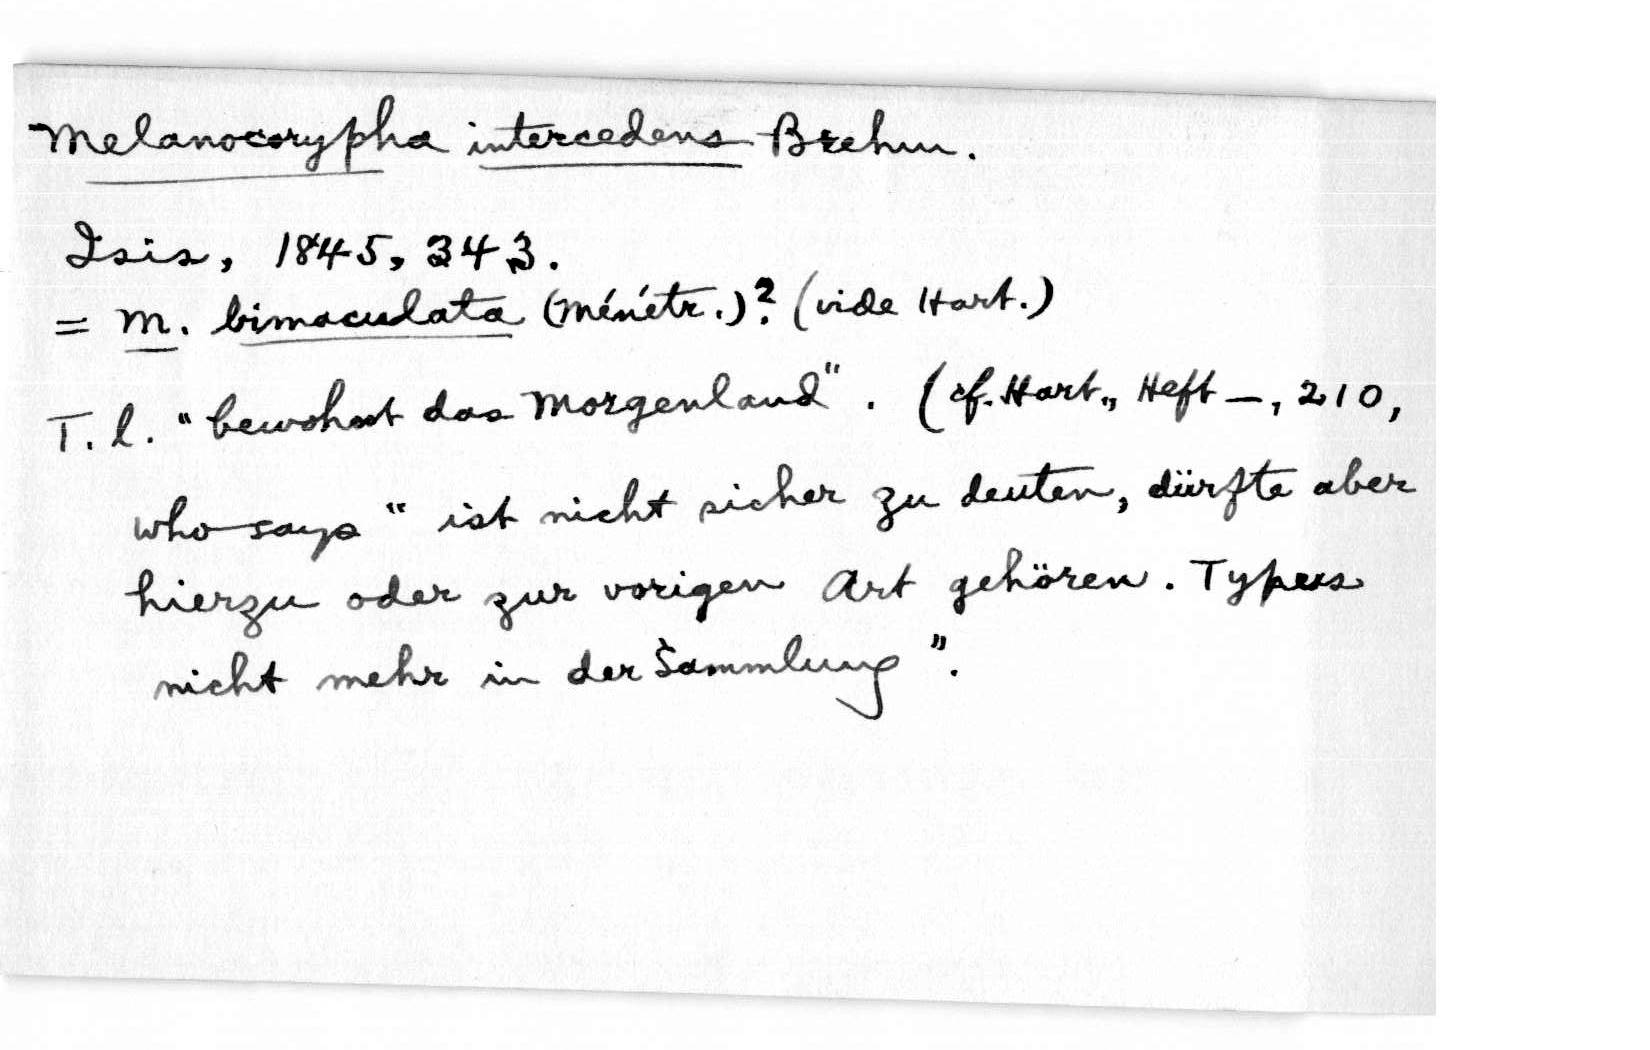 Melanocorypha intercedens Brehm.
Isis, 1845, 343.
= M. bimaculata (Ménétr.)? (vide Hart.)
T. l. "bewohnt das Morgenland". (cf. Hart., Heft —, 210,
who says "ist nicht sicher zu deuten, dürfte aber
hierzu oder zur vorigen Art gehören. Typus
nicht mehr in der Sammlung".